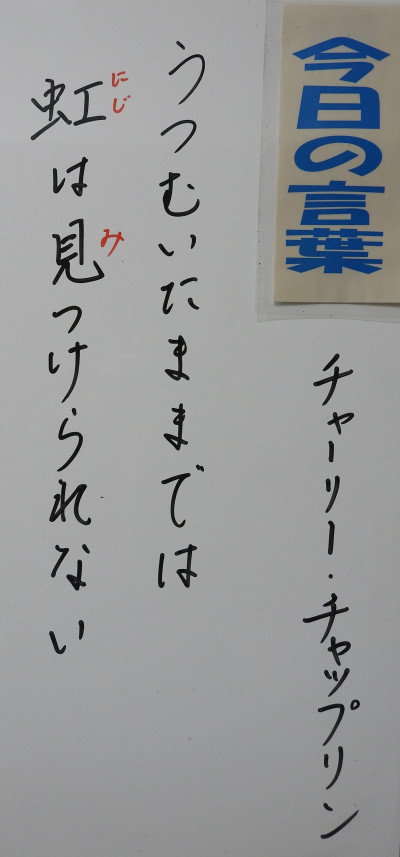 今日の言葉
チャーリー・チャップリン
うつむいたままでは
虹は見つけられない
にじ
み